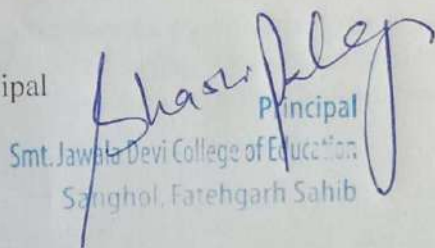 ipal
Principal
Smt. Jawala Devi College of Education
Sanghol, Fatehgarh Sahib